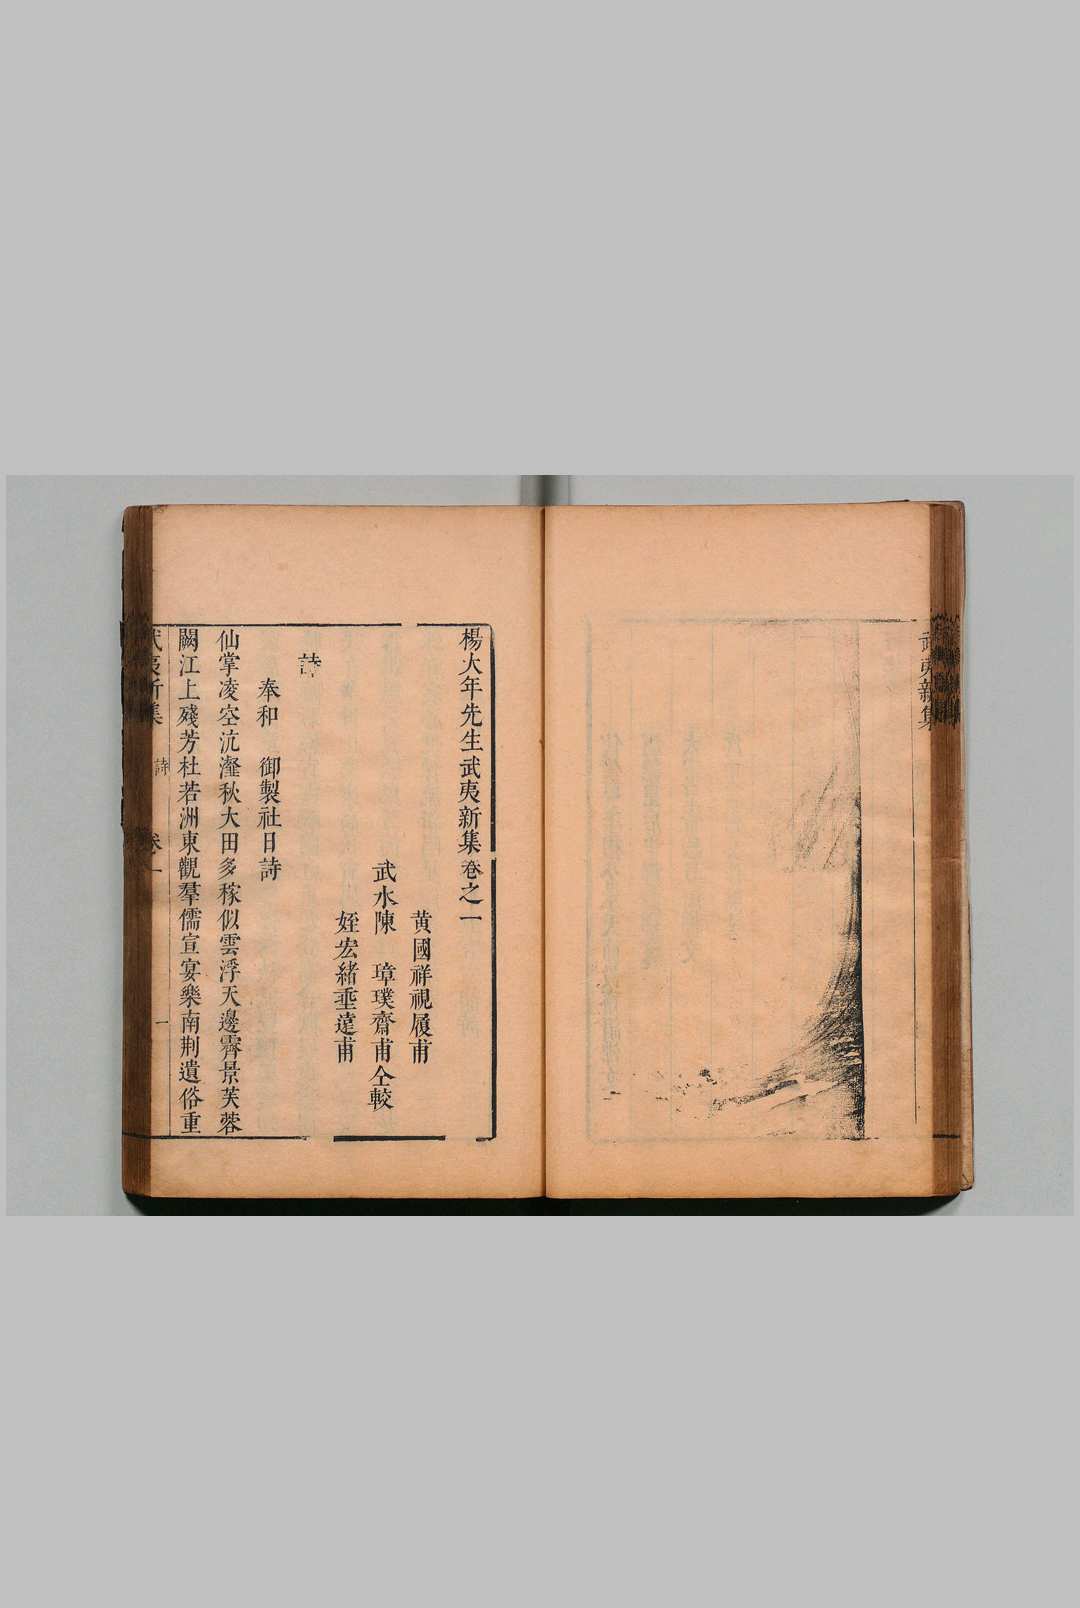 武夷新集
楊大年先生武夷新集卷之一
黄國祥視履甫
武水陳　璋璞齋甫仝較
姪宏緒埀遠甫
詩
奉和　御製社日詩
仙掌凌空沆瀣秋大田多稼似雲浮天邊霽景芙蓉
闕江上殘芳杜若洲東觀羣儒宣宴樂南荆遺俗重
武夷新集　詩　卷一　一